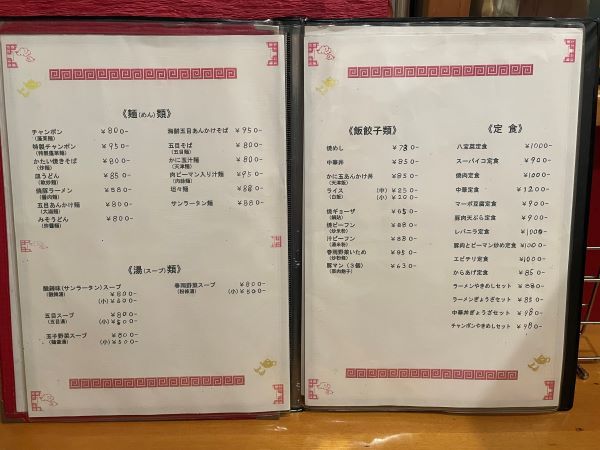 《麺(めん)類》
チャンポン ¥800-
特製チャンポン ¥950-
かたい焼きそば ¥800-
(炒麺)
皿うどん ¥850-
焼豚ラーメン ¥880-
五目あんかけ麺 ¥800-
みそうどん ¥800-
海鮮五目あんかけそば ¥950-
五目そば ¥800-
(五目麺)
かに玉汁麺 ¥800-
(天津麺)
肉ピーマン入り汁麺 ¥950-
坦々麺 ¥880-
サンラータン麺 ¥880-
《湯(スープ)類》
酸辣味(サンラータン)スープ ¥800-
(酸辣湯) (小)¥600-
五目スープ ¥800-
(五目湯) (小)¥500-
玉子野菜スープ ¥800-
(小)¥500-
春雨野菜スープ ¥800-
(小)¥500-
《飯餃子類》
焼めし ¥780-
中華丼 ¥850-
かに玉あんかけ丼 ¥850-
(天津飯)
ライス (中)¥250-
(白飯) (小)¥200-
焼ギョーザ ¥650-
(鍋貼)
焼ビーフン ¥880-
(炒米粉)
汁ビーフン ¥880-
(湯米粉)
春雨野菜いため ¥950-
豚マン(3個) ¥630-
《定食》
八宝菜定食 ¥1000-
スーパイコ定食 ¥900-
焼肉定食 ¥1000-
中華定食 ¥1200-
マーボ豆腐定食 ¥900-
豚肉天ぷら定食 ¥900-
レバニラ定食 ¥1000-
豚肉とピーマン炒め定食 ¥1000-
エビチリ定食 ¥1000-
からあげ定食 ¥850-
ラーメンやきめしセット ¥880-
ラーメンぎょうざセット ¥850-
中華丼ぎょうざセット ¥980-
チャンポンやきめしセット ¥980-